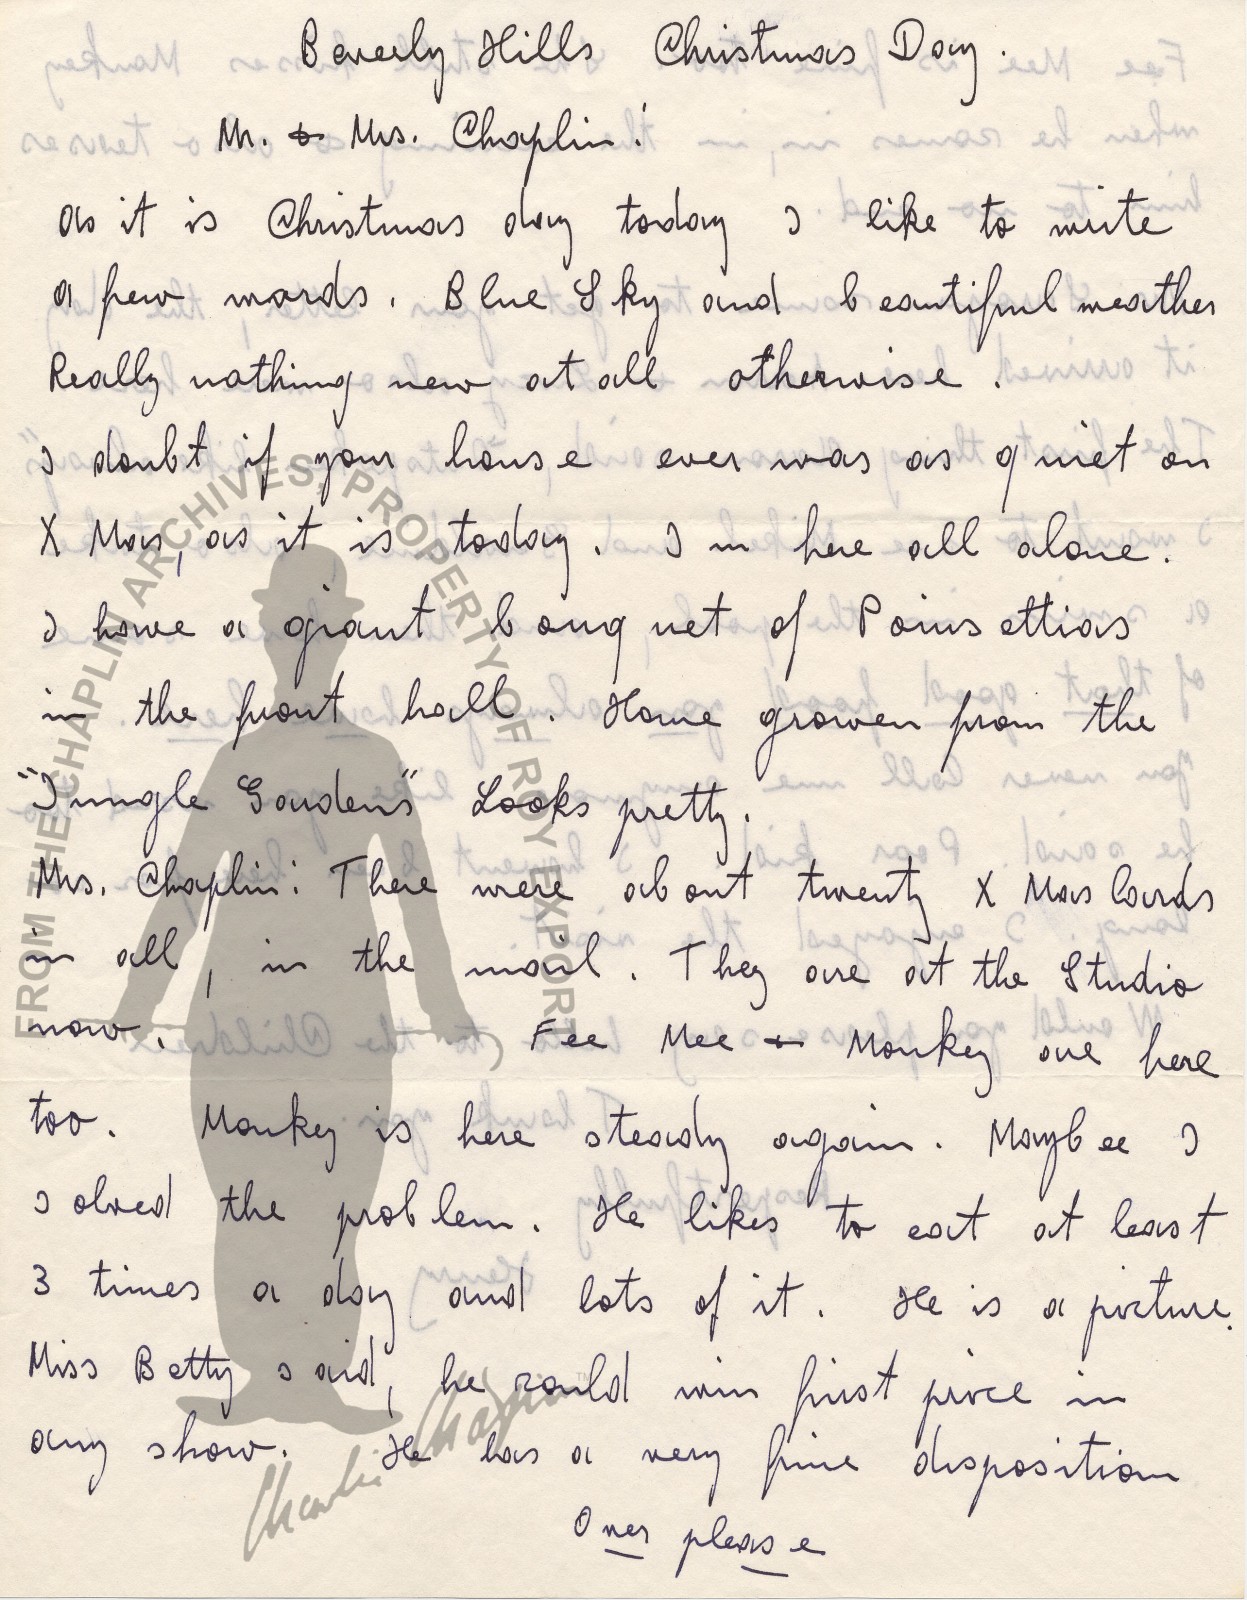 Beverly Hills Christmas Day.
Mr. & Mrs. Chaplin!
As it is Christmas day today I like to write
a few words. Blue Sky and beautiful weather
Really nothing new at all otherwise.
I doubt if your house ever was as quiet on
X Mas, as it is today. I m here all alone.
I have a giant bouquet of Poinsettias
in the front hall. Home growen from the
"Jungle Gardens" Looks pretty.
Mrs. Chaplin: There were about twenty X Mas Cards
in all, in the mail. They are at the Studio
now. Fee Mee & Monkey are here
too. Monkey is here steady again. Maybee I
solved the problem. He likes to eat at least
3 times a day and lots of it. He is a picture.
Miss Betty said, he could win first price in
any show. He has a very fine disposition
Over please
FROM THE CHAPLIN ARCHIVES, PROPERTY OF ROY EXPORT
Charlie Chaplin